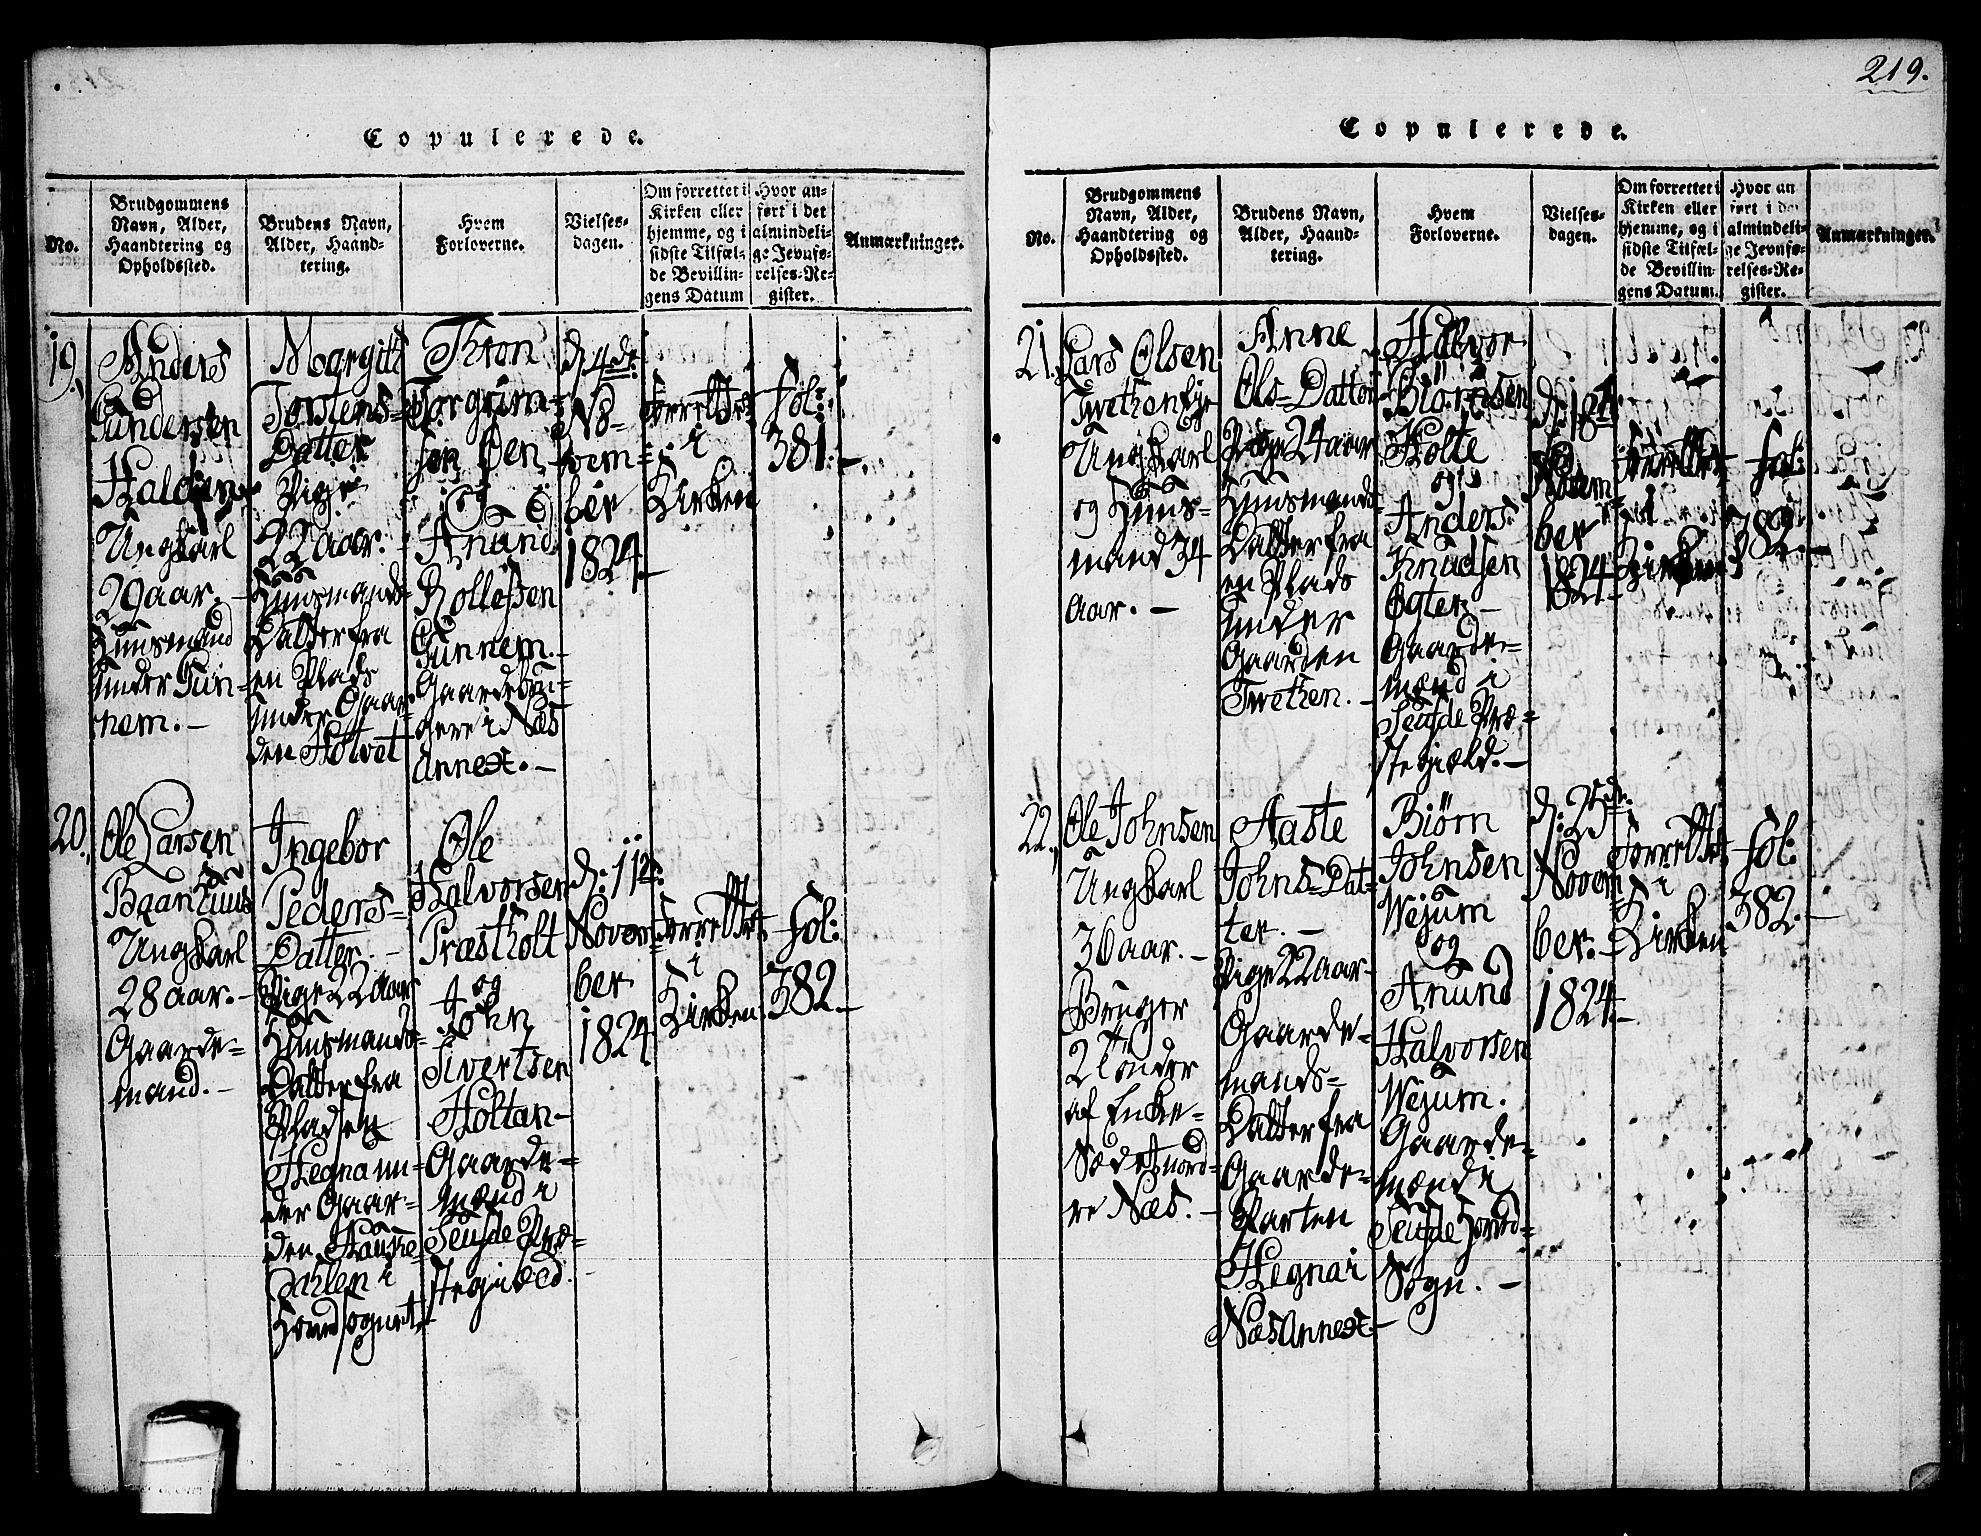 Copulerede.
No.
Brudgommens
Navn, Alder,
Haandtering og
Opholdssted.
Brudens Navn,
Alder, Haand-
tering.
Hvem
Forloverne.
Vielses-
dagen.
Om forrettet i
Kirken eller
hjemme, og i
sidste Tilfæl-
de Bevillin-
gens Datum
Hvor an-
ført i det
almindeli-
ge Jevnfø-
relses-Re-
gister.
Anmærkninger.
19.
Anders
Gundersen
Haldin
Ungkarl
29 aar.
Huusmand
under Gun-
nem.
Margith
Torstens-
Datter
Pige
22 aar.
Huusmands-
Datter fra
en Plads
under Gaar-
den Holtvet
Thron
Torgrim-
sen Øen
Og
Anund
Rollefsen
Gunnem.
Gaardebru-
gere i Næs
Annex.
d. 4de
No-
vem-
ber
1824.
forrettet
i
Kirken
fol:
381.
20.
Ole Larsen
Baanhuus
Ungkarl
28 aar.
Gaarde-
mand.
Ingebor
Peders-
Datter.
Pige 22 Aar
Huusmands-
Datter fra
Pladsen
Hegna un-
der Gaar-
den Hauke-
Dahlen i
Hovedsognet
Ole
Halvorsen
Præstholt
og
John
Sivertsen
Holtan
Gaarde-
mænd i
Seufde Præ-
stegiæld.
d: 11te
Novem-
ber
1824
forrettet
i
Kirken.
fol:
382.
219.
Copulerede.
No.
Brudgommens
Navn, Alder,
Haandtering og
Opholdssted.
Brudens Navn,
Alder, Haand-
tering.
Hvem
Forloverne.
Vielses-
dagen.
Om forrettet i
Kirken eller
hjemme, og i
sidste Tilfæl-
de Bevillin-
gens Datum.
Hvor an
ført i det
almindeli-
ge Jevnfø-
relses-Re-
gister.
Anmærkninger.
21.
Lars Olsen
Twethen Eje
Ungkarl
og Huus-
mand 34
aar.
Anne
Ols-Datter
Pige 24 aar
Huusmands-
Datter fra
en Plads
under
Gaarden
Twethen.
Halvor
Biørnsen
Holte
og
Anders
Knudsen
Ogter
Gaarde-
mænd i
Seufde Præ-
stegiæld.
d: 18de
Novem
ber
1824
forrettet
i
Kirken
fol:
382.
22.
Ole Johnsen
Ungkarl
36 aar.
Bruger
2 Tønder
af Enke-
Sædet nord-
re Næs.
Aaste
Johns-Dat-
ter.
Pige 22 aar
Gaarde-
mands-
Datter fra
Gaarde-
Parten
Hegna i
Næs Annex.
Biørn
Johnsen
Wejum
og
Anund
Halvorsen
Wejum.
Gaarde-
mænd i
Seufde Hoved-
Sogn.
d: 25de
Novem
ber.
1824.
forrettet
i
Kirken
fol:
382.